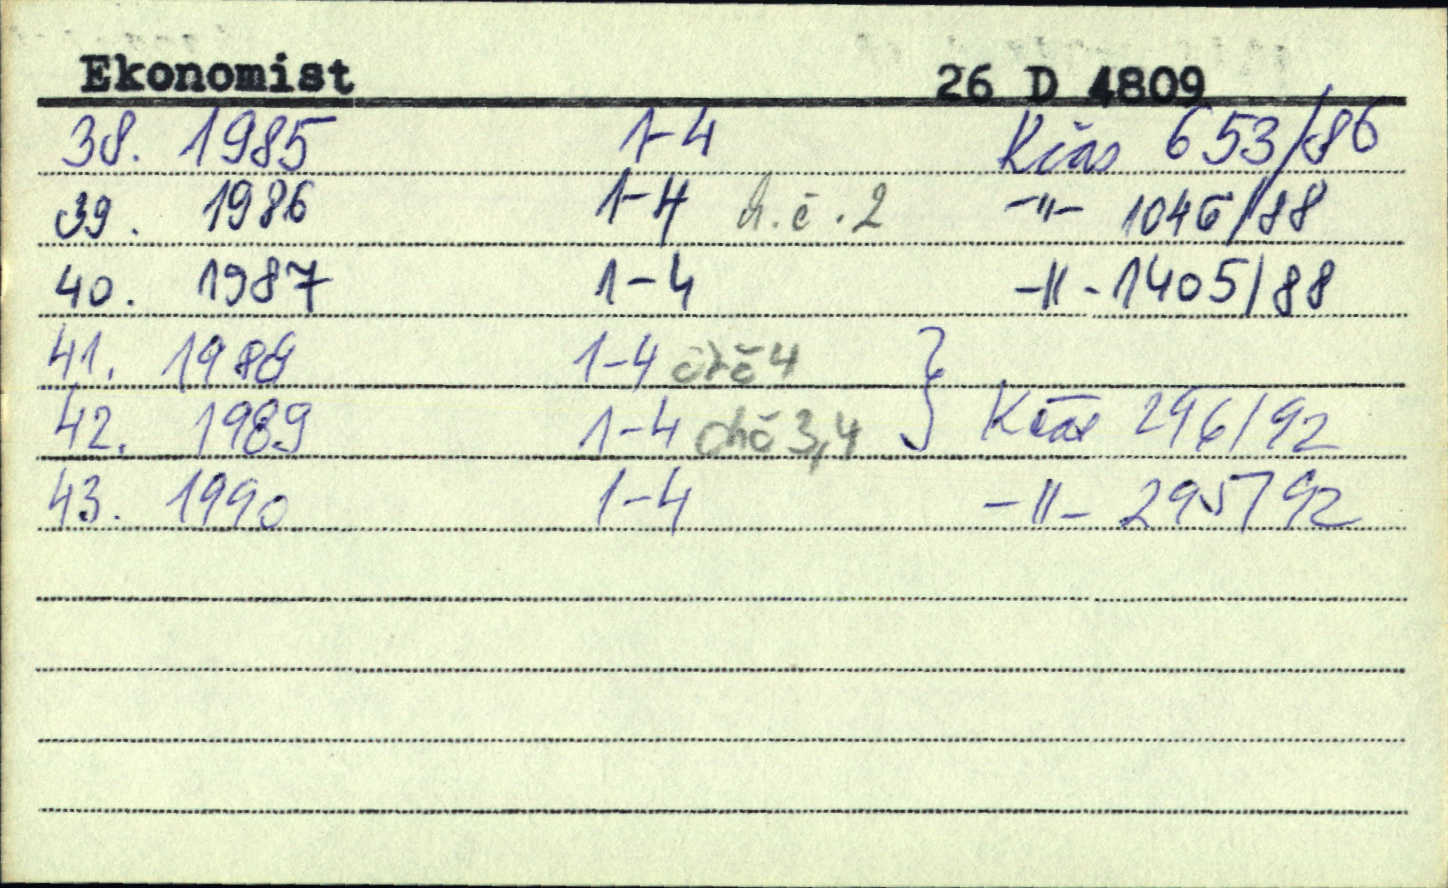 Ekonomist 26 D 4809
38. 1985 1-4 Kčas 653/86
39. 1986 1-4 h.č.2 -"- 1046/88
40. 1987 1-4 -"- 1405/88
41. 1988 1-4 chč 4 }
42. 1989 1-4 chč 3,4 } Kčas 296/92
43. 1990 1-4 -"- 295/92